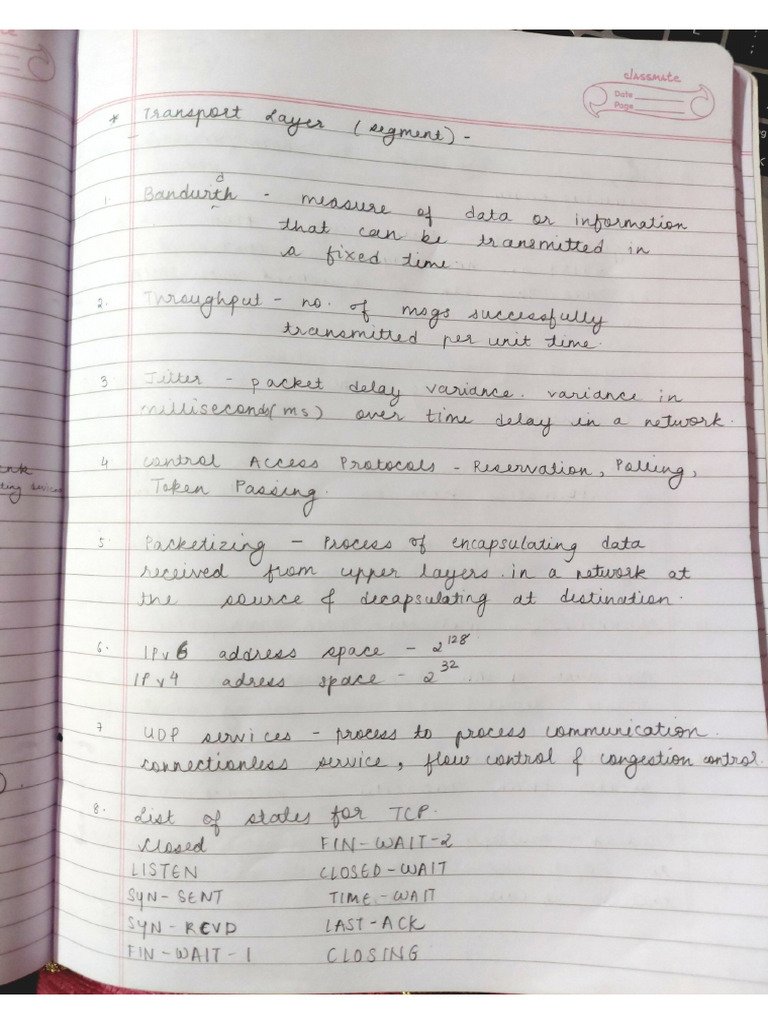 classmate
Date
Page
* Transport Layer (segment) -
1. Bandwidth - measure of data or information
that can be transmitted in
a fixed time.
2. Throughput - no. of msgs successfully
transmitted per unit time.
3 Jitter - packet delay variance. variance in
milliseconds(ms) over time delay in a network.
4 Control Access Protocols - Reservation, Polling,
Token Passing.
5 Packetizing - Process of encapsulating data
received from upper layers in a network at
the source & decapsulating at destination.
6. IPv6 address space - 2^128
IPv4 adress space - 2^32
7 UDP services - process to process communication.
connectionless service, flow control & congestion control.
8. List of states for TCP.
Closed FIN-WAIT-2
LISTEN CLOSED-WAIT
SYN-SENT TIME-WAIT
SYN-REVD LAST-ACK
FIN-WAIT-1 CLOSING